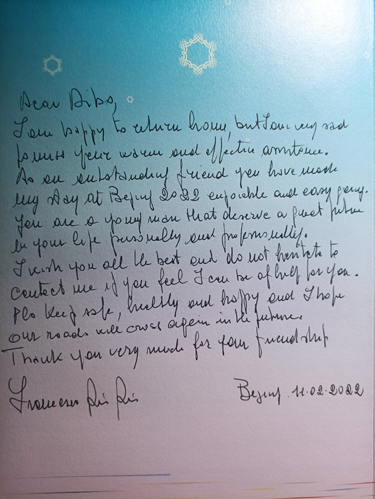 Dear Dibo,
I am happy to return home, but I am very sad
to miss your warm and effective assistance.
As an outstanding friend you have made
my stay at Beijing 2022 enjoyable and easy going.
You are a young man that deserve a great future
in your life personally and professionally.
I wish you all the best and do not hesitate to
contact me if you feel I can be of help for you.
Pls keep safe, healthy and happy and I hope
our roads will cross again in the future.
Thank you very much for your friendship
Francesco
Beijing 11.02.2022